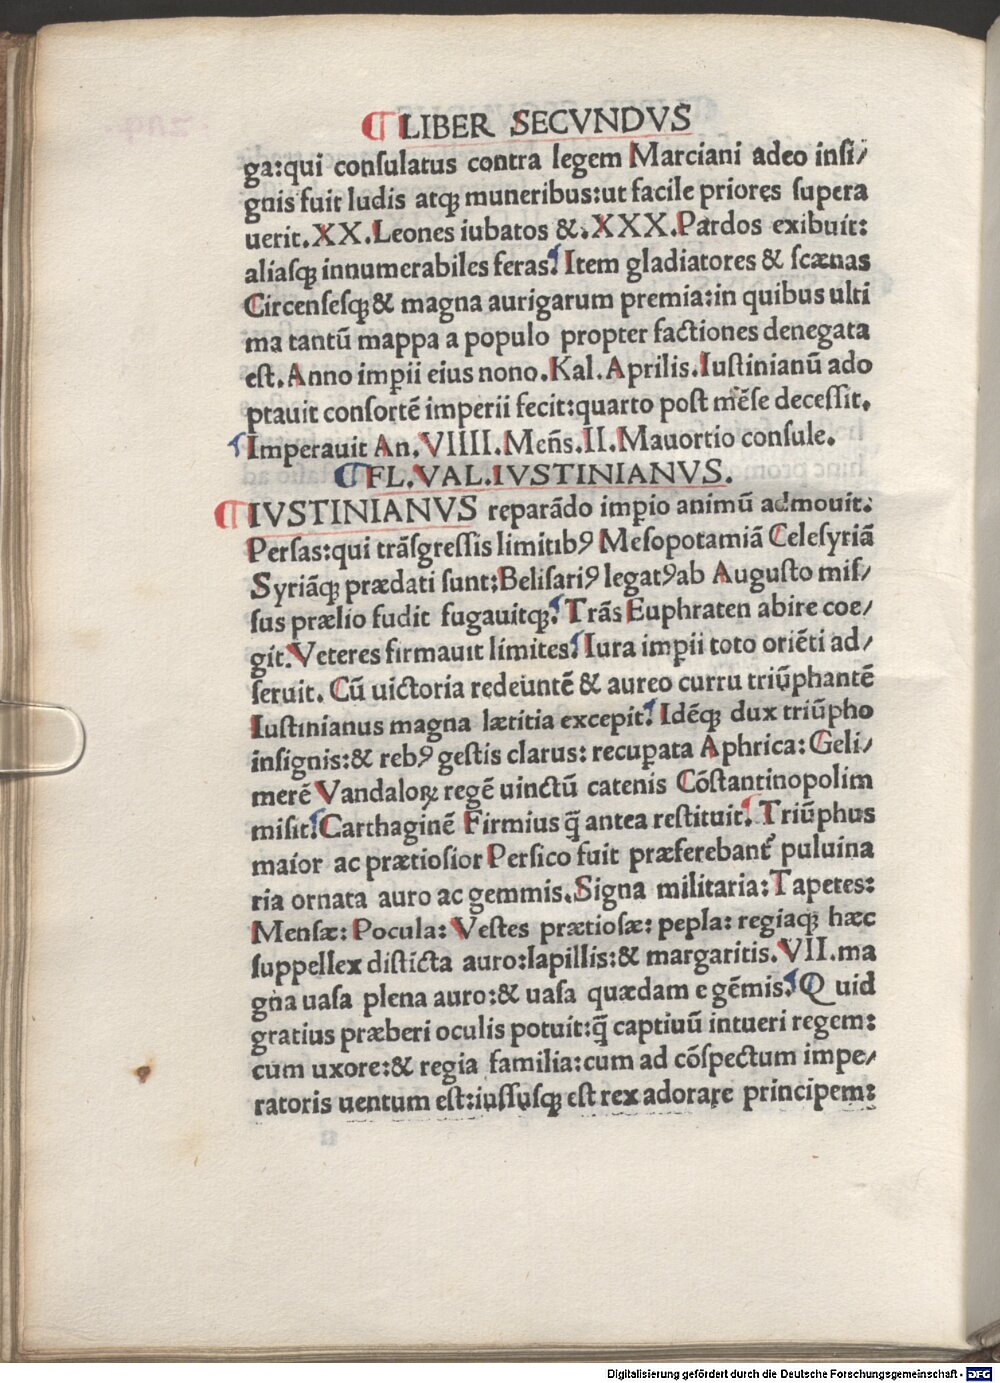 LIBER SECVNDVS
ga:qui conſulatus contra legem Marciani adeo inſi/
gnis fuit ludis atqꝫ muneribus:ut facile priorȩs ſupera
uerit.XX.Leones iubatos &.XXX.Pardos exibuit:
aliaſqꝫ innumerabiles feras. Item gladiatores & ſcænas
Circenſeſqꝫ & magna aurigarum premia:in quibus ulti
ma tantū mappa a populo propter factiones denegata
eſt.Anno imꝑii eius nono.Kal.Aprilis.Iuſtinianū ado
ptauit conſortē imperii fecit:quarto poſt mēſe deceſſit.
Imperauit An.VIIII.Meñs.II.Mauortio conſule.
FL.VAL.IVSTINIANVS.
IVSTINIANVS reparādo imꝑio animū admouit.
Perſas:qui trāſgreſſis limitibꝰ Meſopotamiā Celeſyriā
Syriāqꝫ prædati ſunt:Beliſariꝰ legatꝰ ab Auguſto miſ/
ſus prælio fudit fugauitqꝫ. Trāſ Euphraten abire coe/
git.Veteres firmauit limites. Iura imꝑii toto oriēti ad/
ſeruit. Cū uictoria redeuntē & aureo curru triūphantē
Iuſtinianus magna lætitia excepit. Idēqꝫ dux triūpho
inſignis:& rebꝰ geſtis clarus: recuꝑata Aphrica: Geli/
merē Vandaloꝝ regē uinctū catenis Cōſtantinopolim
miſit. Carthaginē Firmius q̄ antea reſtituit. Triūphus
maior ac prætioſior Perſico fuit præferebant᷑ puluina
ria ornata auro ac gemmis.Signa militaria:Tapetes:
Menſæ: Pocula: Veſtes prætioſæ: pepla: regiaqꝫ hæc
ſuppellex diſticta auro:lapillis:& margaritis.VII.ma
gna uaſa plena auro:& uaſa quædam e gēmis. Quid
gratius præberi oculis potuit:q̄ captiuū intueri regem:
cum uxore:& regia familia:cum ad cōſpectum impe/
ratoris uentum eſt:iuſſuſqꝫ eſt rex adorare principem:
Digitalisierung gefördert durch die Deutsche Forschungsgemeinschaft - DFG